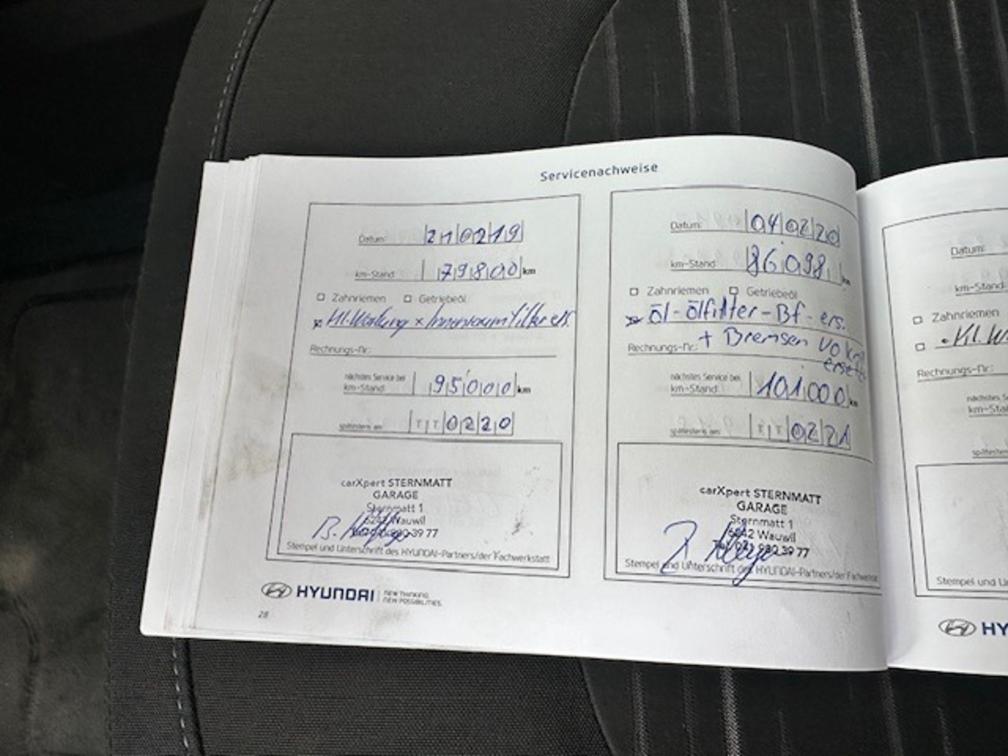 Servicenachweise
Datum: 21 02 19
km-Stand 79800 km
Zahnriemen Getriebeöl
x Kl. Wartung x Innenraumfilter ers.
Rechnungs-Nr.:
nächster Service bei
km-Stand: 95000 km
spätestens am: TT 0220
carXpert STERNMATT
GARAGE
Sternmatt 1
6242 Wauwil
980 39 77
Stempel und Unterschrift des HYUNDAI-Partners/der Fachwerkstatt
HYUNDAI NEW THINKING.
NEW POSSIBILITIES.
28
Datum: 04 02 20
km-Stand 86098 km
Zahnriemen Getriebeöl
x Öl-Ölfilter-Bf-ers.
Rechnungs-Nr.: + Bremsen vo
nächstes Service bei
km-Stand: 101000 km
spätestens am: TT 0221
carXpert STERNMATT
GARAGE
Sternmatt 1
6242 Wauwil
Tel. 041 980 39 77
Stempel und Unterschrift des HYUNDAI-Partners/der Fachwerks
Datum:
km-Stand
Zahnriemen
Kl. W
Rechnungs-Nr.:
nächste
km-Sta
späteste
Stempel und U
HY